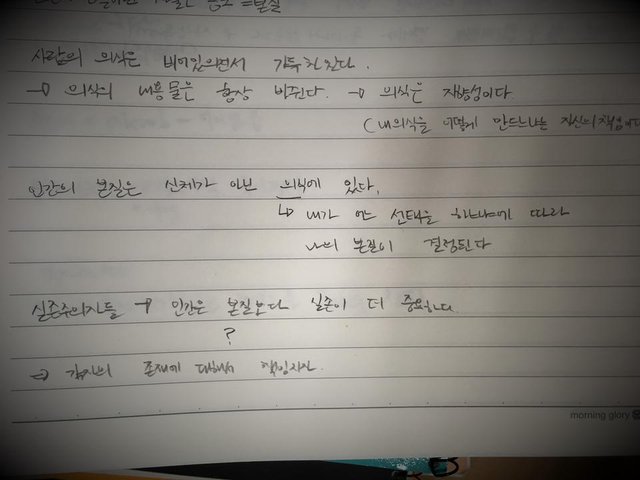 = 본질
사람의 의식은 비어있으면서 가득 찬 잔다.
→ 의식의 내용물은 항상 바뀐다. → 의식은 지향성이다
(내의식을 어떻게 만드느냐는 자신의 책임이다
인간의 본질은 신체가 아닌 의식에 있다.
↳ 내가 어떤 선택을 하느냐에 따라
나의 본질이 결정된다
실존주의자들 → 인간은 본질보다 실존이 더 중요하다.
?
→ 각자의 존재에 대해서 책임지자.
morning glory